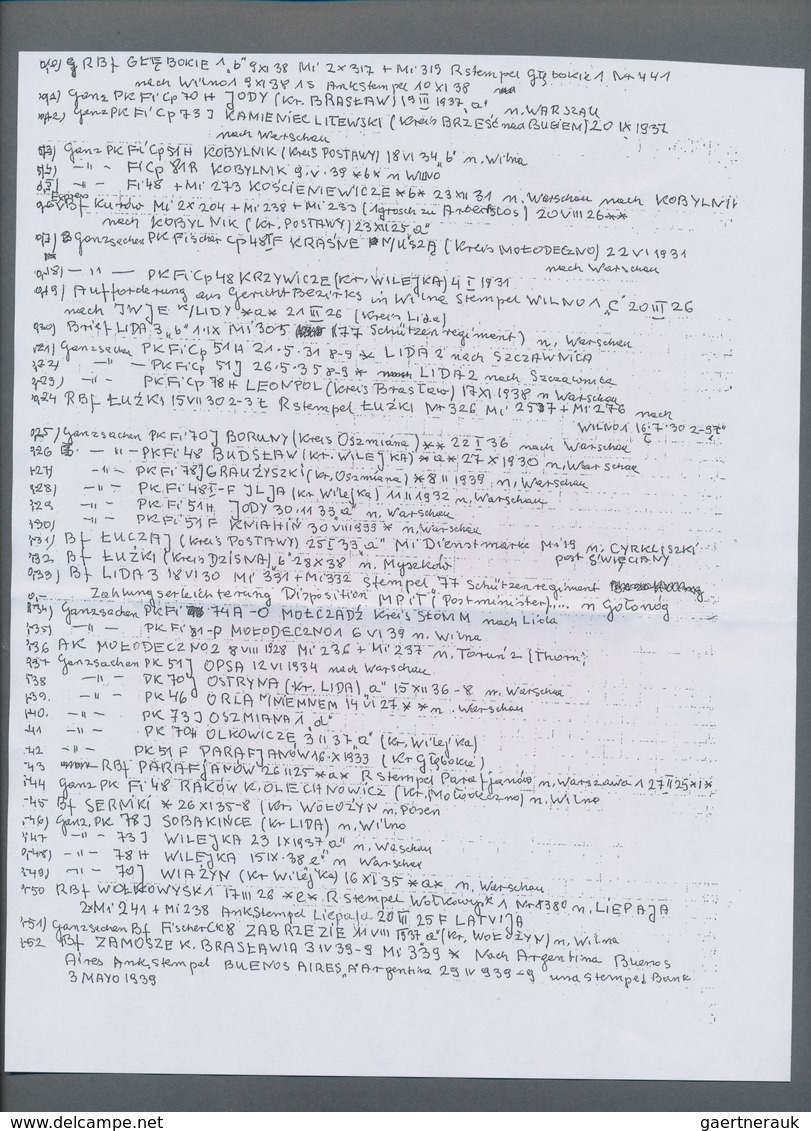 RBf GŁĘBOKIE 1 „b" 9 XI 38 Mi 2x317 + Mi 319 R stempel Głębokie 1 Nr 441
nach Wilno 1 9 XI 38 15 Ankstempel 10 XI 38
Ganz PK Fi Cp 70 H JODY (Kr. BRASŁAW) 19 III 1937 „a" n. WARSZAU
Ganz PK Fi Cp 73 J KAMIENIEC LITEWSKI (Kreis BRZEŚĆ nad BUGIEM) 20 IX 1937
nach Warschau
Ganz PK Fi Cp 51 H KOBYLNIK (Kreis POSTAWY) 18 VI 34 „b" n. Wilna
-"- Fi Cp 81 R KOBYLNIK 9. V. 39 *b* n WILNO
-"- Fi 48 + Mi 273 KOŚCIENIEWICZE *b* 23 XII 31 n. Warschau nach KOBYLNIK
Bf Kurów Mi 2x204 + Mi 238 + Mi 233 (1 grosch zu Arbeitslos) 20 VIII 26 **
nach KOBYLNIK (Kr. POSTAWY) 23 XII 25 „a"
Ganzsachen PK Fischer Cp 48 I F KRASNE N/USZĄ (Kreis MOŁODECZNO) 22 VI 1931
nach Warschau
18) -"- PK Fi Cp 48 KRZYWICZE (Kr. WILEJKA) 4 I 1931
19) Aufforderung aus Gericht Bezirks in Wilna Stempel WILNO 1 „C" 20 III 26
nach IWJE K/LIDY *a* 21 III 26 (Kreis Lida)
20) Brief LIDA 3 „b" 1 IX Mi 305 (77 Schützenregiment) n. Warschau
21) Ganzsachen PK Fi Cp 51 H 21.5.31 8-9 * LIDA 2 nach SZCZAWNICA
22) -"- PK Fi Cp 51 J 26.5.35 8-9 * LIDA 2 nach Szczawnica
23) -"- PK Fi Cp 78 H LEONPOL (Kreis Brasław) 17 XI 1938 n Warschau
24 RBf ŁUŻKI 15 VII 30 2-3 t R stempel ŁUŻKI Nr 326 Mi 257 + Mi 276 nach
WILNO 1 16.7.30 2-9
25) Ganzsachen PK Fi 70 J BORUNY (Kreis Oszmiana) ** 22 I 36 nach Warschau
26 -"- PK Fi 48 BUDSŁAW (Kr. WILEJKA) *a* 27 X 1930 n. Warschau
27) -"- PK Fi 78 J GRAUŻYSZKI (Kr. Oszmiana) * 8 II 1939 n. Warschau
28) -"- PK Fi 48 I-F ILJA (Kr Wilejka) 11 II 1932 n. Warschau
29 -"- PK Fi 51 H JODY 30.11 33 „a" n. Warschau
30) -"- PK Fi 51 F KNIAHININ 30 VIII 1933 * n. Warschau
31) Bf ŁUCZAJ (Kreis POSTAWY) 25 I 33 „a" Mi Dienstmarke Mi 19 n. CYRKLISZKI
post ŚWIĘCIANY
32. Bf ŁUŻKI (Kreis DZISNA) „b" 28 X 38 n. Myszków
33) Bf LIDA 3 18 VI 30 Mi 331 + Mi 332 Stempel 77 Schützenregiment
Zahlungserleichterung Disposition MPiT (Postminister).... n Gołonóg
34) Ganzsachen PK Fi 74 A-O MOŁCZADŹ Kreis SŁONIM nach Lida
35) -"- PK Fi 81-P MOŁODECZNO 1 6 VI 39 n. Wilna
36 AK MOŁODECZNO 2 8 VIII 1928 Mi 236 + Mi 237 n. Toruń 2 (Thorn)
37 Ganzsachen PK 51 J OPSA 12 VI 1934 nach Warschau
38 -"- PK 70 J OSTRYNA (Kr. LIDA) „a" 15 XII 36-8 n. Warschau
39. -"- PK 46 ORLA N/NIEMNEM 14 VI 27 * * n. Warschau
40. -"- PK 73 J OSZMIANA 1 „d"
41 -"- PK 70 H OLKOWICZE 3 II 37 „a" (Kr. Wilejka)
42 -"- PK 51 F PARAFJANÓW 16.X 1933 (Kr Głębokie)
43 RBf PARAFJANÓW 26 II 25 *a* R stempel Parafjanów n. Warszawa 1 27 II 25 *1*
44 Ganz PK Fi 48 RAKÓW K. OLECHNOWICZ (Kr. Mołodeczno) n. Wilno
45 Bf SERNIKI * 26 XI 35-8 (Kr. WOŁOŻYN n. Posen
46) Ganz. PK 78 J SOBAKIŃCE (Kr LIDA) n. Wilno
47 -"- 73 J WILEJKA 23 IX 1937 „a" n. Waschau
48) -"- 78 H WILEJKA 15 IX.38 „e" n Warschau
49) -"- 70 J WIAŻYŃ (Kr Wilejka) 16 XI 35 *a* n. Warschau
50 RBf WOŁKOWYSK 1 17 III 26 *e* R stempel Wołkowysk 1 Nr 1380 n. LIEPAJA
2xMi 241 + Mi 238 AnkStempel Liepaja 20 III 25 F LATVIJA
51) Ganzsachen Bf Fischer CK 8 ZABRZEZIE 11 VIII 1937 „a" (Kr. WOŁOŻYN) n. Wilna
52 Bf ZAMOSZE K. BRASŁAWIA 3 IV 39-9 Mi 339 * Nach Argentina Buenos
Aires Ank. Stempel BUENOS AIRES „A" Argentina 29 IV 939-9 und Stempel Bank
3 MAYO 1939
www.delcampe.net
gaertnerauk